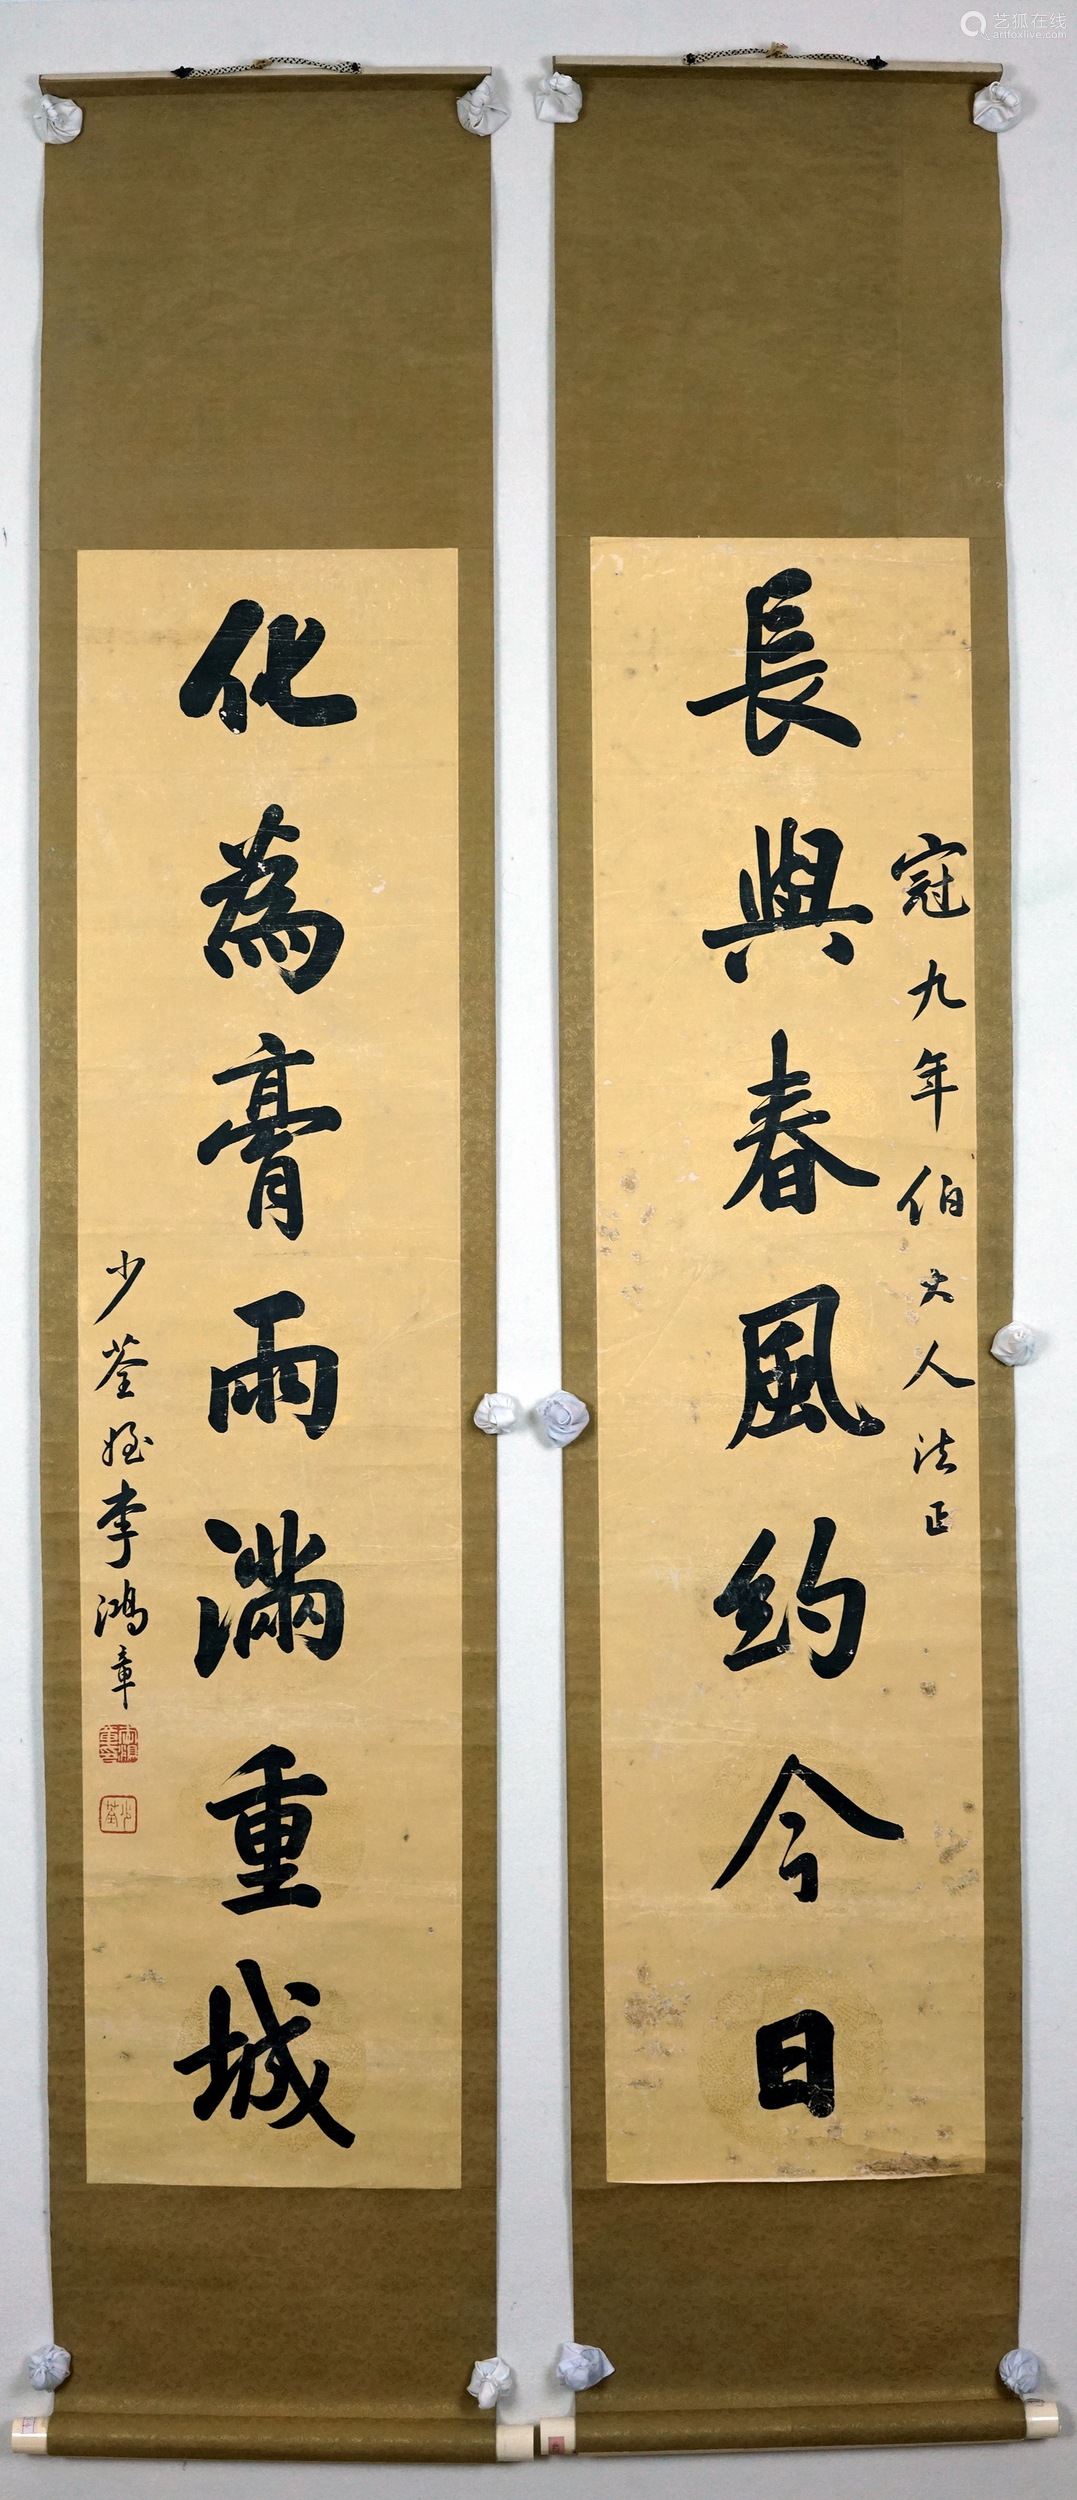 艺狐在线
artfoxlive.com
冠九年伯大人法正
長與春風約今日
化為膏雨滿重城
少荃姪李鴻章
少荃